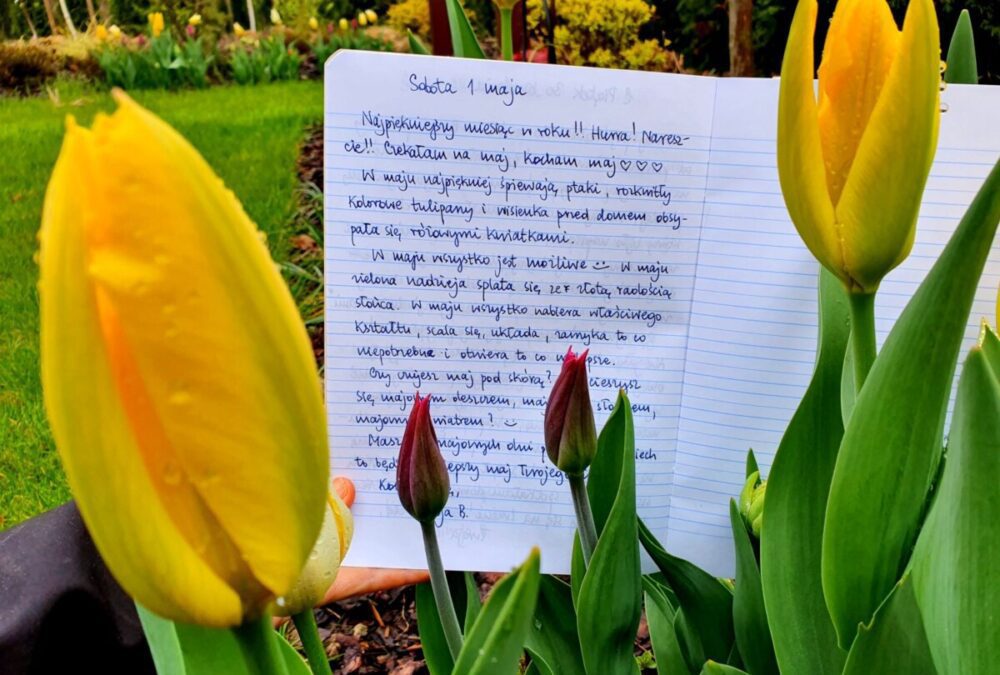 Sobota 1 maja
Najpiękniejszy miesiąc w roku!! Hurra! Naresz-
cie!! Czekałam na maj, kocham maj ♡♡♡
W maju najpiękniej śpiewają ptaki, rozkwitły
kolorowe tulipany i wisienka przed domem obsy-
pała się różowymi kwiatkami.
W maju wszystko jest możliwe :) W maju
zielona nadzieja splata się ze złotą radością
słońca. W maju wszystko nabiera właściwego
kształtu, scala się, układa, zamyka to co
niepotrzebne i otwiera to co
Czy czujesz maj pod skórą? cieszysz
się majowym deszczem,
wiatrem? :)
majowych dni
to Twojego
B.